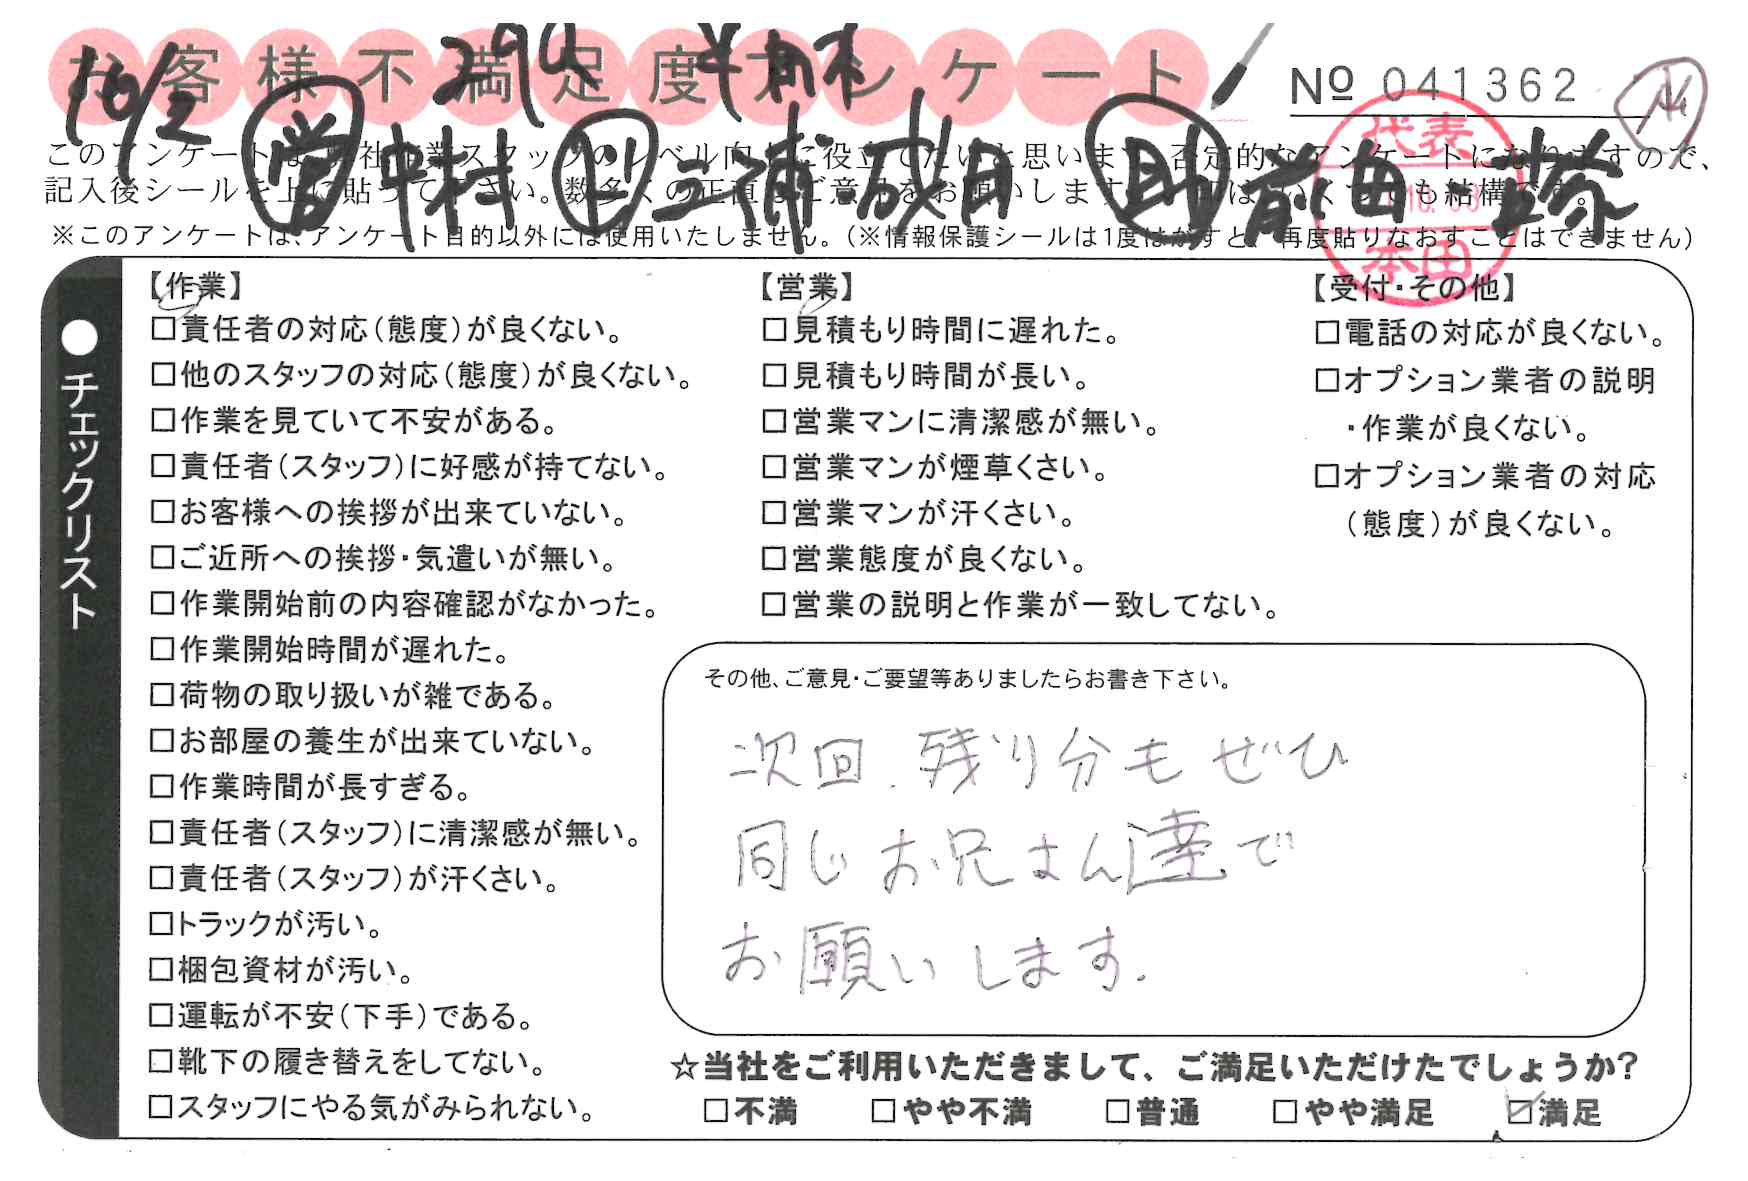 お客様不満足度アンケート
№ 041362
10/2
営 中村 三浦 成田 助 前田
代表
本田
このアンケートは、弊社作業スタッフのレベル向上に役立てたいと思います。否定的なアンケートになりますので、
記入後シールを上に貼って下さい。数多くの正直なご意見をお願いします。
※このアンケートは、アンケート目的以外には使用いたしません。(※情報保護シールは1度はがすと、再度貼りなおすことはできません)
●チェックリスト
【作業】
□責任者の対応(態度)が良くない。
□他のスタッフの対応(態度)が良くない。
□作業を見ていて不安がある。
□責任者(スタッフ)に好感が持てない。
□お客様への挨拶が出来ていない。
□ご近所への挨拶・気遣いが無い。
□作業開始前の内容確認がなかった。
□作業開始時間が遅れた。
□荷物の取り扱いが雑である。
□お部屋の養生が出来ていない。
□作業時間が長すぎる。
□責任者(スタッフ)に清潔感が無い。
□責任者(スタッフ)が汗くさい。
□トラックが汚い。
□梱包資材が汚い。
□運転が不安(下手)である。
□靴下の履き替えをしてない。
□スタッフにやる気がみられない。
【営業】
□見積もり時間に遅れた。
□見積もり時間が長い。
□営業マンに清潔感が無い。
□営業マンが煙草くさい。
□営業マンが汗くさい。
□営業態度が良くない。
□営業の説明と作業が一致してない。
【受付・その他】
□電話の対応が良くない。
□オプション業者の説明
・作業が良くない。
□オプション業者の対応
(態度)が良くない。
その他、ご意見・ご要望等ありましたらお書き下さい。
次回、残り分もぜひ
同じお兄さん達で
お願いします.
☆当社をご利用いただきまして、ご満足いただけたでしょうか?
□不満 □やや不満 □普通 □やや満足 ☑満足